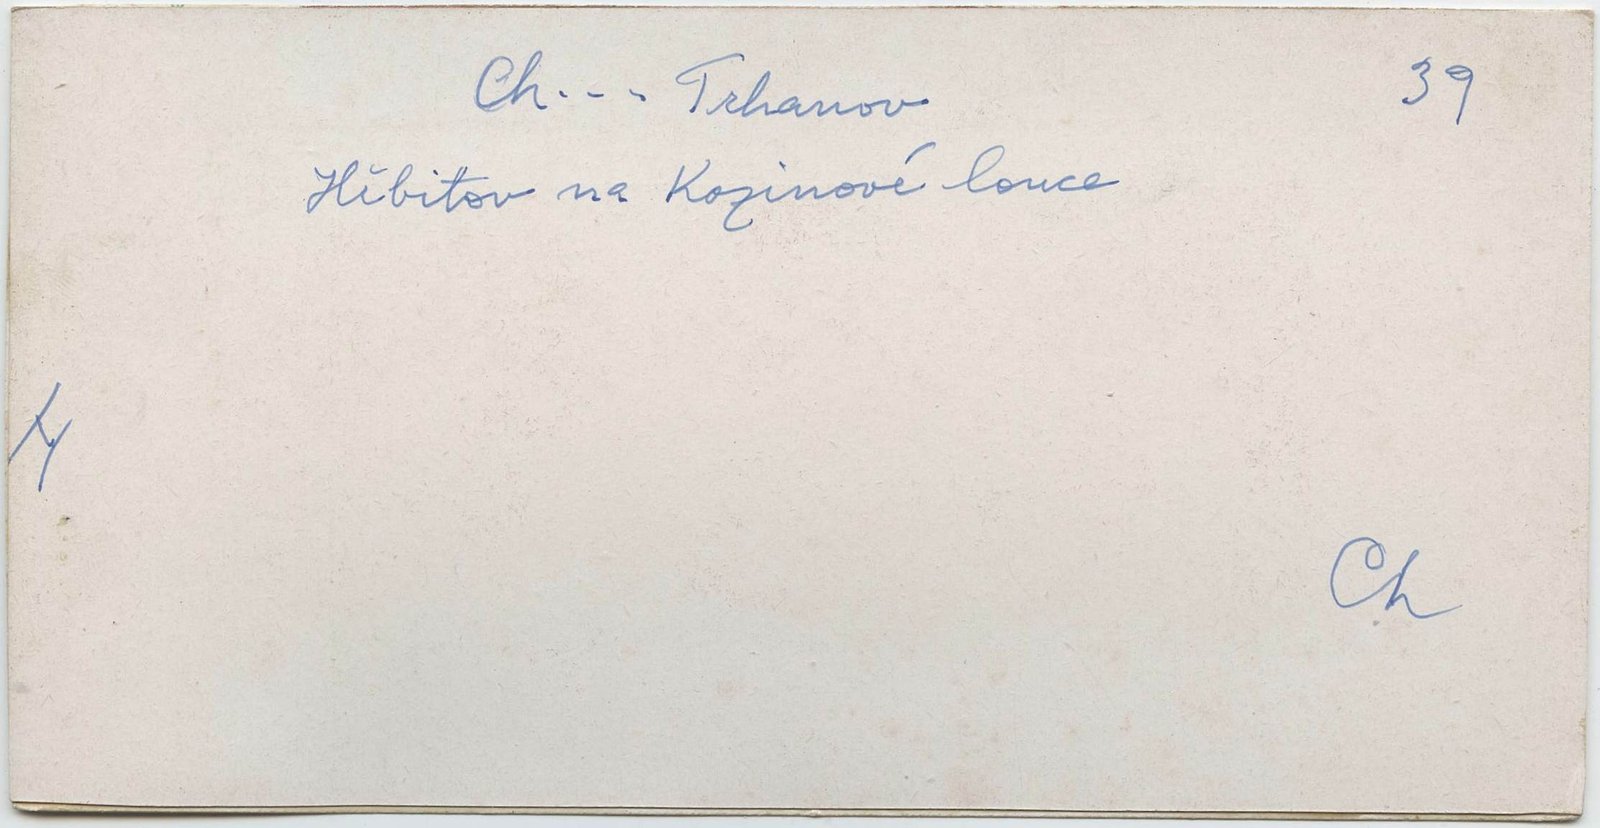 Ch... Trhanov
39
Hřbitov na Kozinově louce
Ch